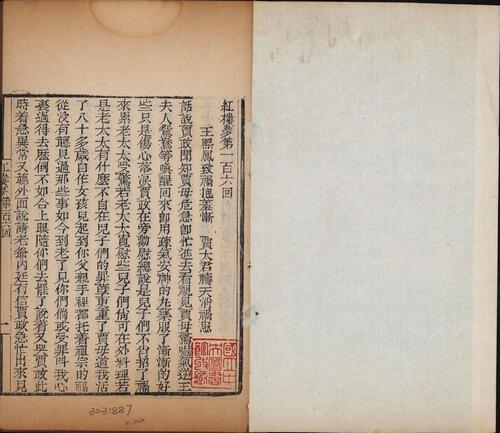 紅樓夢第一百六回
王熙鳳致禍抱羞慚　賈太君禱天消禍患
話說賈政聞知賈母危急即忙進去看視見賈母驚嚇氣逆王
夫人鴛鴦等喚醒回來即用疏氣安神的丸藥服了漸漸的好
些只是傷心落淚賈政在旁勸慰總說是兒子們不肖招了禍
來累老太太受驚若老太太寬慰些兒子們尚可在外料理若
是老太太有什麽不自在兒子們的罪孽更重了賈母道我活
了八十多歲自作女孩兒起到你父親手裡都托着祖宗的福
從没有聽見過那些事如今到老了見你們倘或受罪呌我心
裏過得去麽倒不如合上眼隨你們去罷了說着又哭賈政此
時着急異常又聽外面說請老爺内廷有信賈政急忙出來見
第百六回
一
3031887